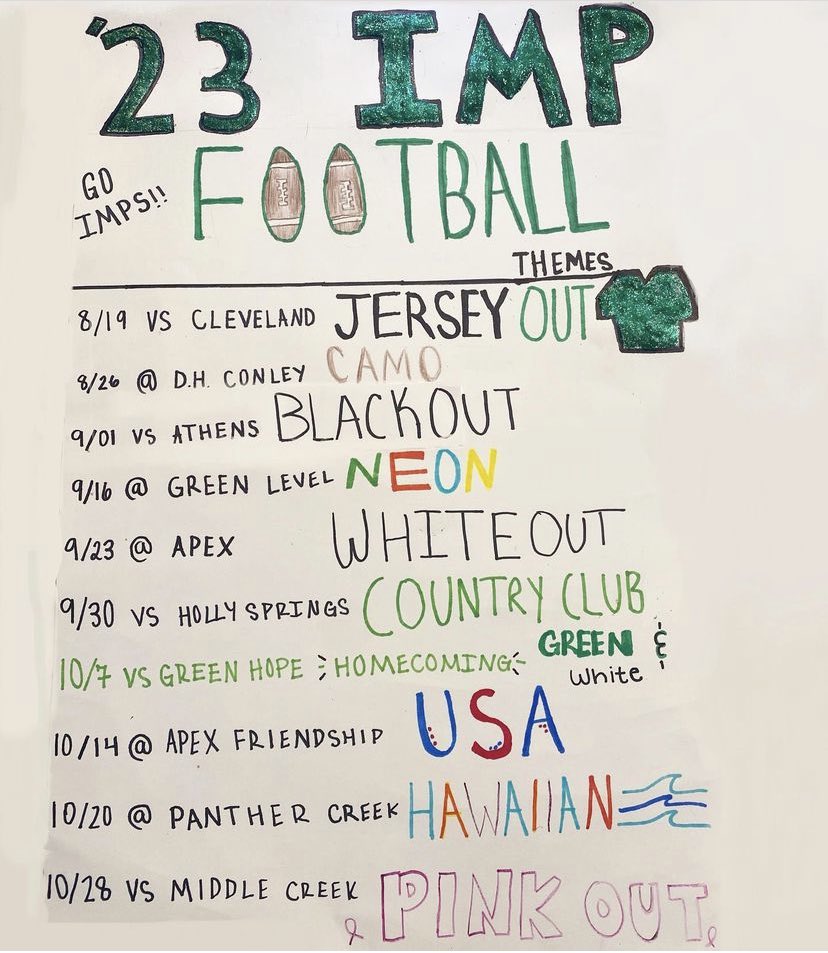 '23 IMP
GO
IMPS!!
FOOTBALL
THEMES
8/19 VS CLEVELAND JERSEY OUT
8/26 @ D.H. CONLEY CAMO
9/01 VS ATHENS BLACKOUT
9/16 @ GREEN LEVEL NEON
9/23 @ APEX WHITEOUT
9/30 VS HOLLY SPRINGS COUNTRY CLUB
10/7 VS GREEN HOPE HOMECOMING GREEN &
White
10/14 @ APEX FRIENDSHIP USA
10/20 @ PANTHER CREEK HAWAIIAN
10/28 VS MIDDLE CREEK PINK OUT